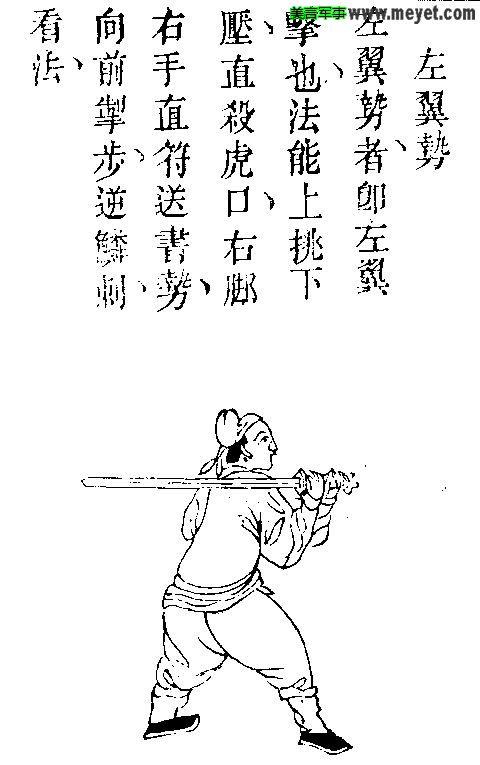 美育军事
www.meyet.com
左翼勢
左翼勢者卽左翼
擊也法能上挑下
壓直殺虎口、右脚
右手直符送書勢、
向前掣步、逆鱗刺、
看法、